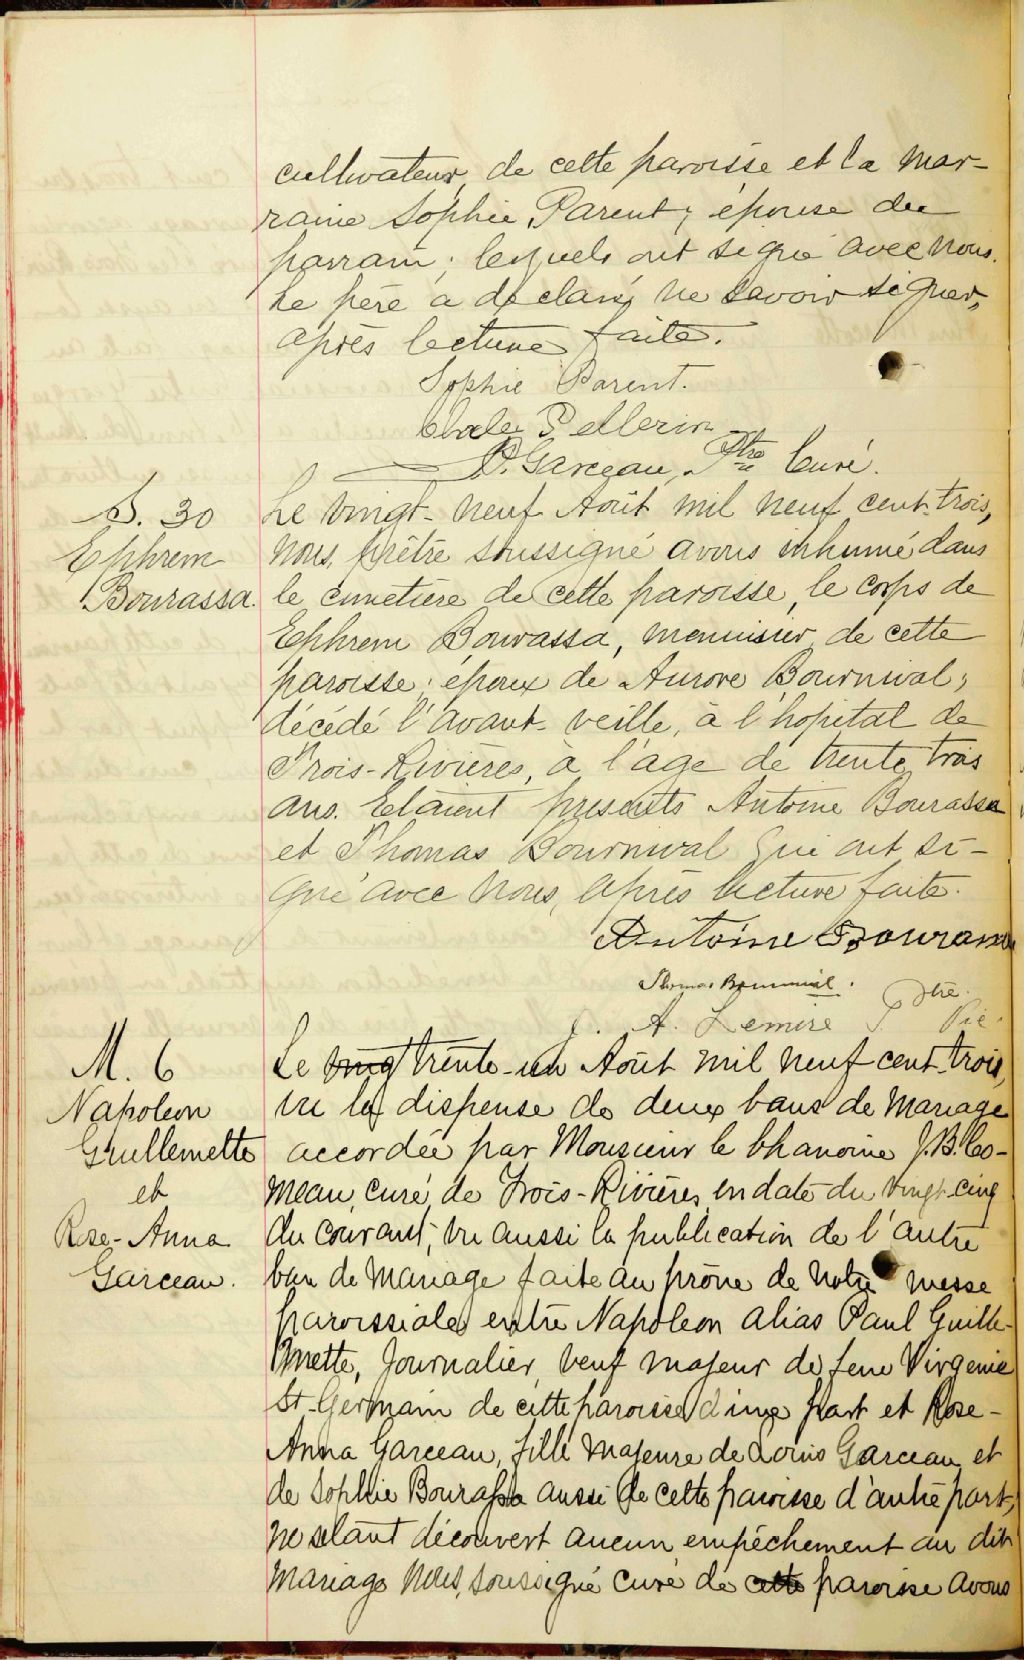 cultivateur, de cette paroisse et la mar-
raine Sophie Parent, épouse du
parrain; lesquels ont signé avec nous.
Le père a declaré ne savoir signer,
après lecture faite.
Sophie Parent.
Pellerin
D. Garceau, Ptre Curé.
S. 30
Ephrem
Bourassa.
Le vingt-neuf Août mil neuf cent-trois,
nous, prêtre soussigné avons inhumé dans
le cimetière de cette paroisse, le corps de
Ephrem Bourassa, menuisier, de cette
paroisse; époux de Aurore Bournival,
décédé l'avant-veille, à l'hopital de
Trois-Rivières, à l'age de trente trois
ans. Etaient presents Antoine Bourassa
et Thomas Bournival qui ont si-
gné avec nous, après lecture faite.
Antoine Bourassa
Thomas Bournival.
J. A. Lemire Ptre. Vic.
M. 6
Napoleon
Guillemette
et
Rose-Anna
Garceau.
Le vingt trente-un Août mil neuf cent-trois,
vu la dispense de deux bans de mariage
accordée par Monsieur le Chanoine J.B. Co-
meau, curé de Trois-Rivières, en date du vingt-cinq
du courant; vu aussi la publication de l'autre
ban de mariage faite au prône de notre messe
paroissiale entre Napoleon alias Paul Guille-
mette, Journalier, veuf majeur de feue Virgenie
St-Germain de cette paroisse d'une part et Rose-
Anna Garceau, fille majeure de Louis Garceau et
de Sophie Bourassa aussi de cette paroisse d'autre part,
ne s'etant découvert aucun empêchement au dit
mariage Nous, soussigné curé de cette paroisse avons